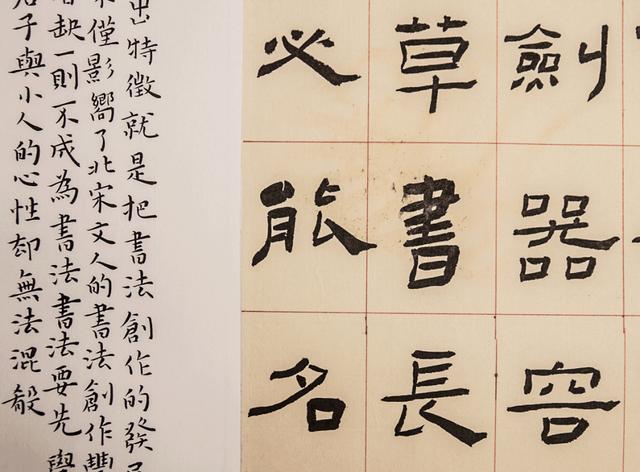 劍器容
草書長
必能名
出特徵就是把書法創作的發
僅影嚮了北宋文人的書法創作豐
缺一則不成為書法書法要先學
子與小人的心性却無法混殽